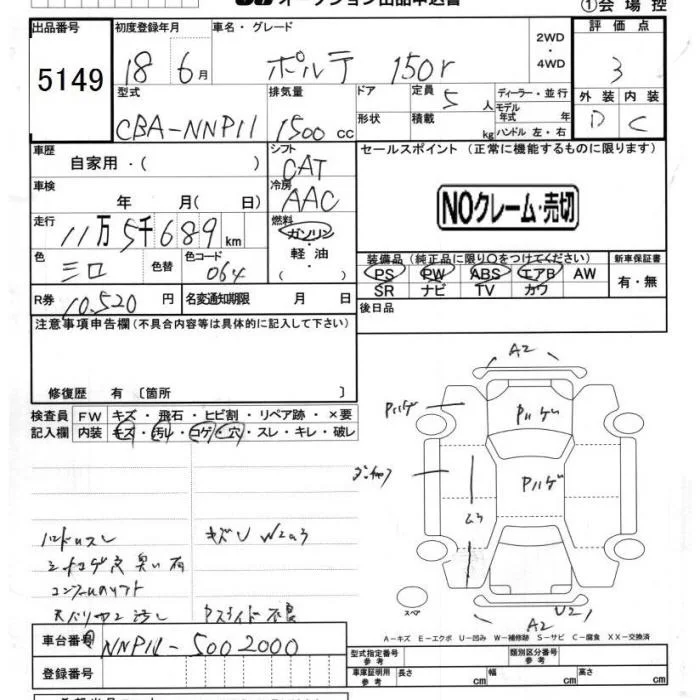 ①会場控
出品番号 初度登録年月 車名・グレード 評価点
5149 18 6月 ポルテ 150r 2WD・4WD 3
型式 排気量 ドア 定員 5人 ディーラー・並行 外装 内装
モデル年式 年
CBA-NNP11 1500cc 形状 積載 kg ハンドル 左・右 D C
車歴 自家用・( ) シフト CAT セールスポイント (正常に機能するものに限ります)
車検 年 月( 日) 冷房 AAC NOクレーム・売切
走行 11万5千689km 燃料 ガソリン・軽油・( )
色 シロ 色替 色コード 064 装備品 (純正品に限り○をつけてください) 新車保証書
PS PW ABS エアB AW 有・無
SR ナビ TV カワ
R券 10,520円 名変通知期限 月 日 後日品
注意事項申告欄 (不具合内容等は具体的に記入して下さい)
修復歴 有 〔箇所 〕
検査員 FW キズ・飛石・ヒビ割・リペア跡・×要
記入欄 内装 キズ・汚レ・コゲ・穴・スレ・キレ・破レ
A2
Pハゲ Pハゲ
Pハゲ
キズU W2a3
シートコゲ穴 臭い有
U2
スペア A2
A-キズ E-エクボ U-凹み W-補修跡 S-サビ C-腐食 XX-交換済
車台番号 NNP11-5002000 型式指定番号 参考 類別区分番号 参考
登録番号 車庫証明用 参考 長さ cm 幅 cm 高さ cm